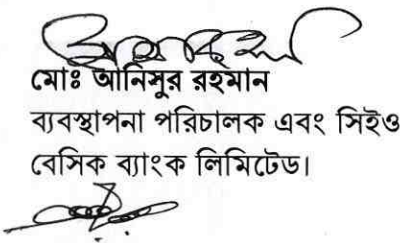 মোঃ আনিসুর রহমান
ব্যবস্থাপনা পরিচালক এবং সিইও
বেসিক ব্যাংক লিমিটেড।